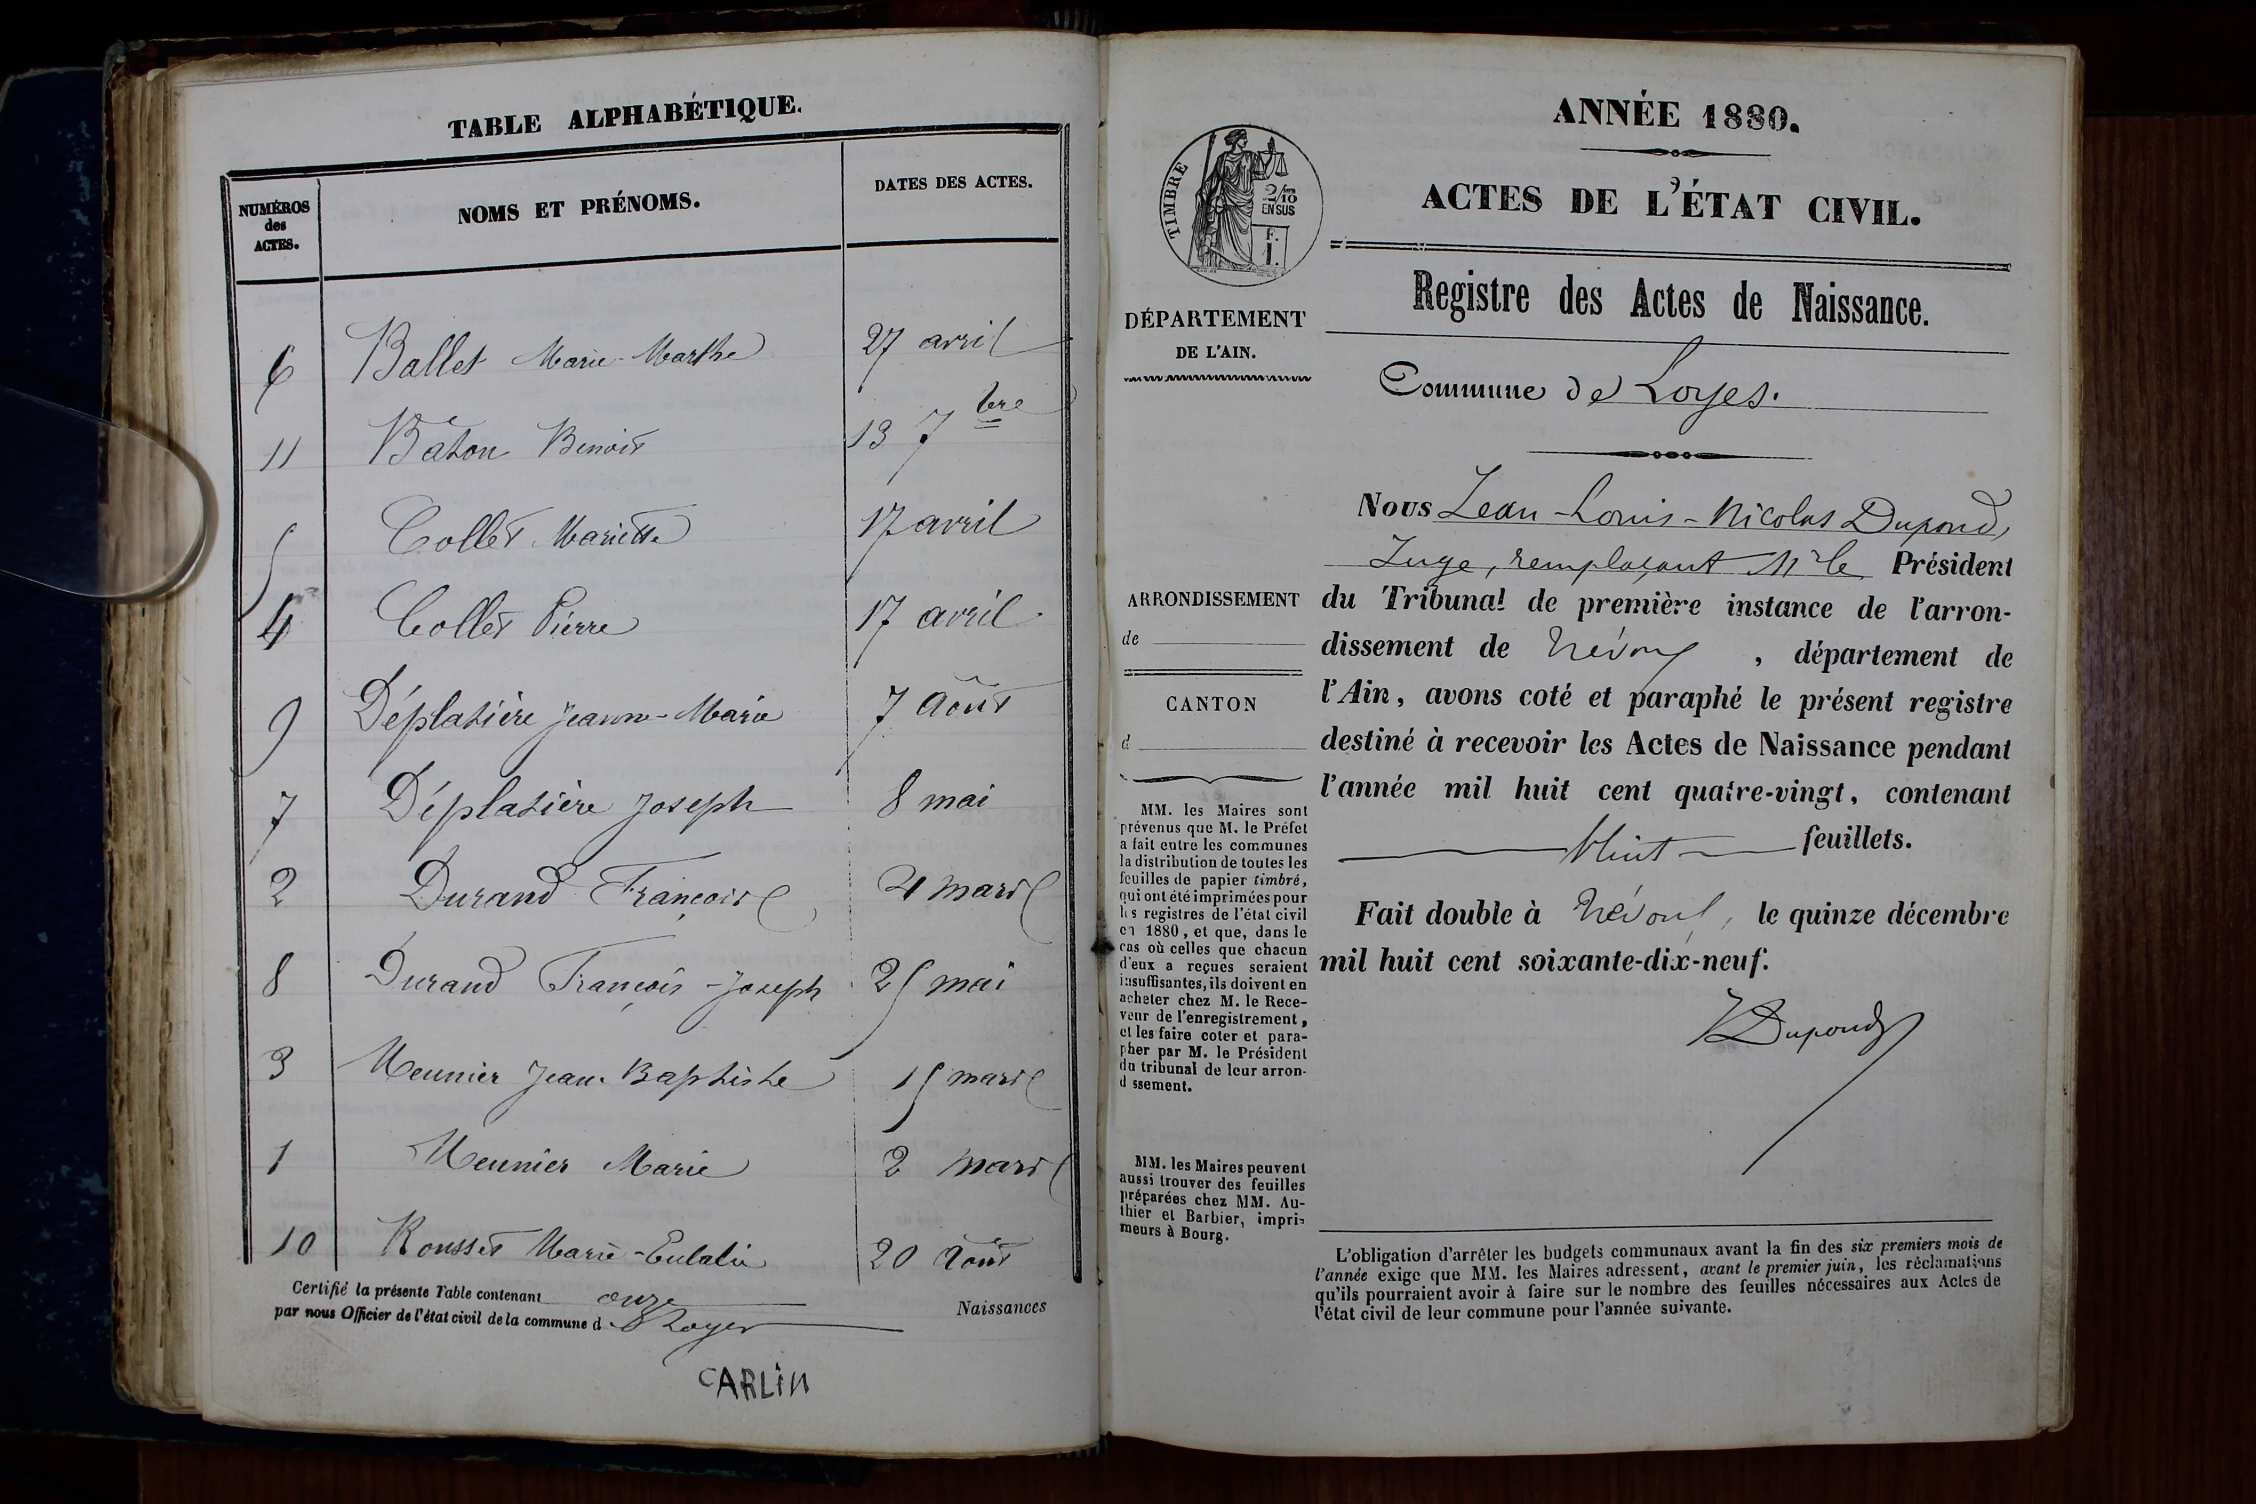 TABLE ALPHABÉTIQUE.
NUMÉROS des ACTES. NOMS ET PRÉNOMS. DATES DES ACTES.
6 Ballet Marie-Marthe 27 avril
11 Bâton Benoit 13 7bre
5 Collet Mariette 17 avril
4 Collet Pierre 17 avril
9 Déplatière Jeanne-Marie 7 Août
7 Déplatière Joseph 8 mai
2 Durand François 4 mars
8 Durand François-Joseph 25 mai
3 Meunier Jean-Baptiste 15 mars
1 Meunier Marie 2 mars
10 Rousset Marie-Eulalie 20 Août
Certifié la présente Table contenant onze Naissances
par nous Officier de l'état civil de la commune d Loyes
CARLIN
ANNÉE 1880.
ACTES DE L'ÉTAT CIVIL.
TIMBRE
2/10
EN SUS
F.
1.
DÉPARTEMENT
DE L'AIN.
Registre des Actes de Naissance.
Commune de Loyes.
ARRONDISSEMENT
de
CANTON
d
MM. les Maires sont
prévenus que M. le Préfet
a fait entre les communes
la distribution de toutes les
feuilles de papier timbré,
qui ont été imprimées pour
les registres de l'état civil
en 1880, et que, dans le
cas où celles que chacun
d'eux a reçues seraient
insuffisantes, ils doivent en
acheter chez M. le Rece-
veur de l'enregistrement,
et les faire coter et para-
pher par M. le Président
du tribunal de leur arron-
d ssement.
MM. les Maires peuvent
aussi trouver des feuilles
préparées chez MM. Au-
thier et Barbier, impri-
meurs à Bourg.
Nous Jean-Louis-Nicolas Dupond,
Juge, remplaçant Mr le Président
du Tribunal de première instance de l'arron-
dissement de Trévoux, département de
l'Ain, avons coté et paraphé le présent registre
destiné à recevoir les Actes de Naissance pendant
l'année mil huit cent quatre-vingt, contenant
Huit feuillets.
Fait double à Trévoux, le quinze décembre
mil huit cent soixante-dix-neuf.
Dupond
L'obligation d'arrêter les budgets communaux avant la fin des six premiers mois de
l'année exige que MM. les Maires adressent, avant le premier juin, les réclamations
qu'ils pourraient avoir à faire sur le nombre des feuilles nécessaires aux Actes de
l'état civil de leur commune pour l'année suivante.